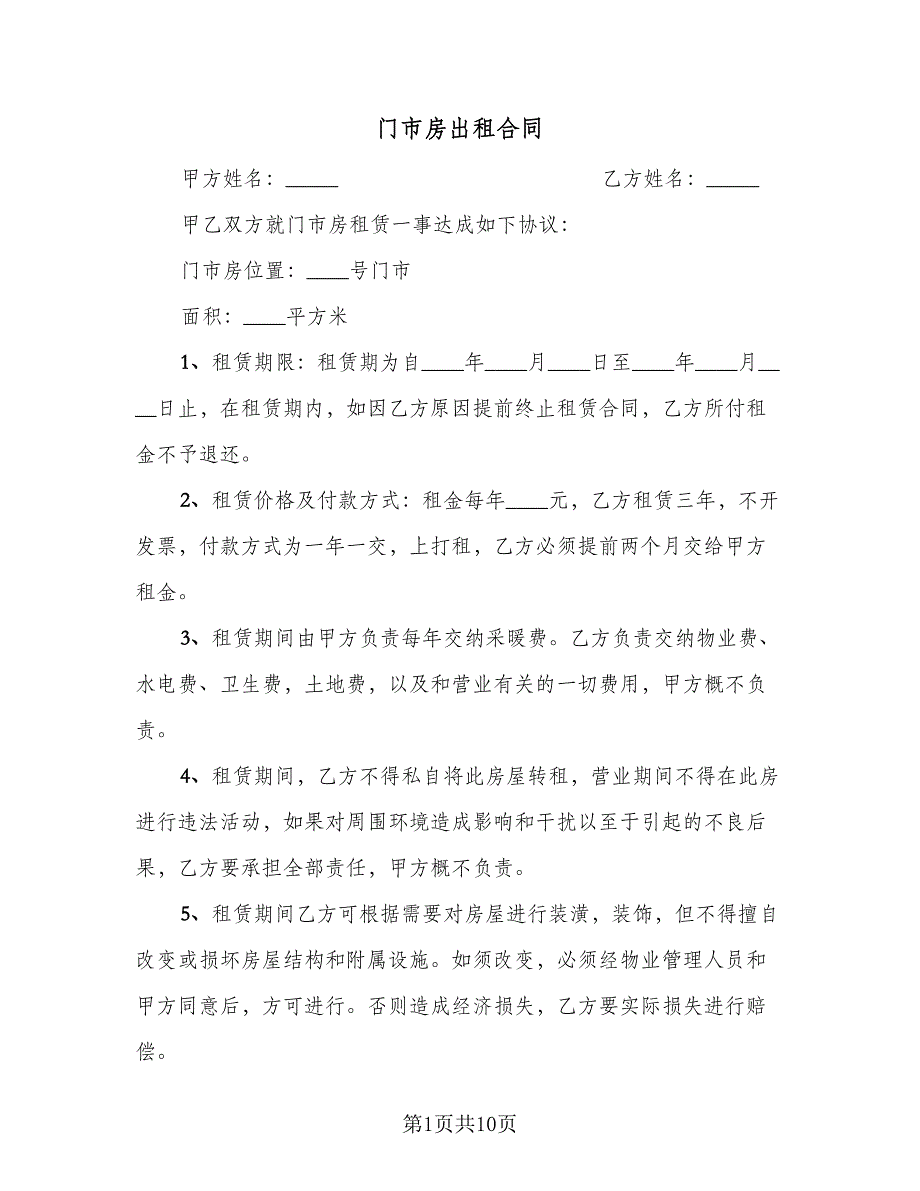 门市房出租合同
甲方姓名：_____ 乙方姓名：_____
甲乙双方就门市房租赁一事达成如下协议：
门市房位置：____号门市
面积：____平方米
1、租赁期限：租赁期为自____年____月____日至____年____月__
__日止，在租赁期内，如因乙方原因提前终止租赁合同，乙方所付租
金不予退还。
2、租赁价格及付款方式：租金每年____元，乙方租赁三年，不开
发票，付款方式为一年一交，上打租，乙方必须提前两个月交给甲方
租金。
3、租赁期间由甲方负责每年交纳采暖费。乙方负责交纳物业费、
水电费、卫生费，土地费，以及和营业有关的一切费用，甲方概不负
责。
4、租赁期间，乙方不得私自将此房屋转租，营业期间不得在此房
进行违法活动，如果对周围环境造成影响和干扰以至于引起的不良后
果，乙方要承担全部责任，甲方概不负责。
5、租赁期间乙方可根据需要对房屋进行装潢，装饰，但不得擅自
改变或损坏房屋结构和附属设施。如须改变，必须经物业管理人员和
甲方同意后，方可进行。否则造成经济损失，乙方要实际损失进行赔
偿。
第1页共10页